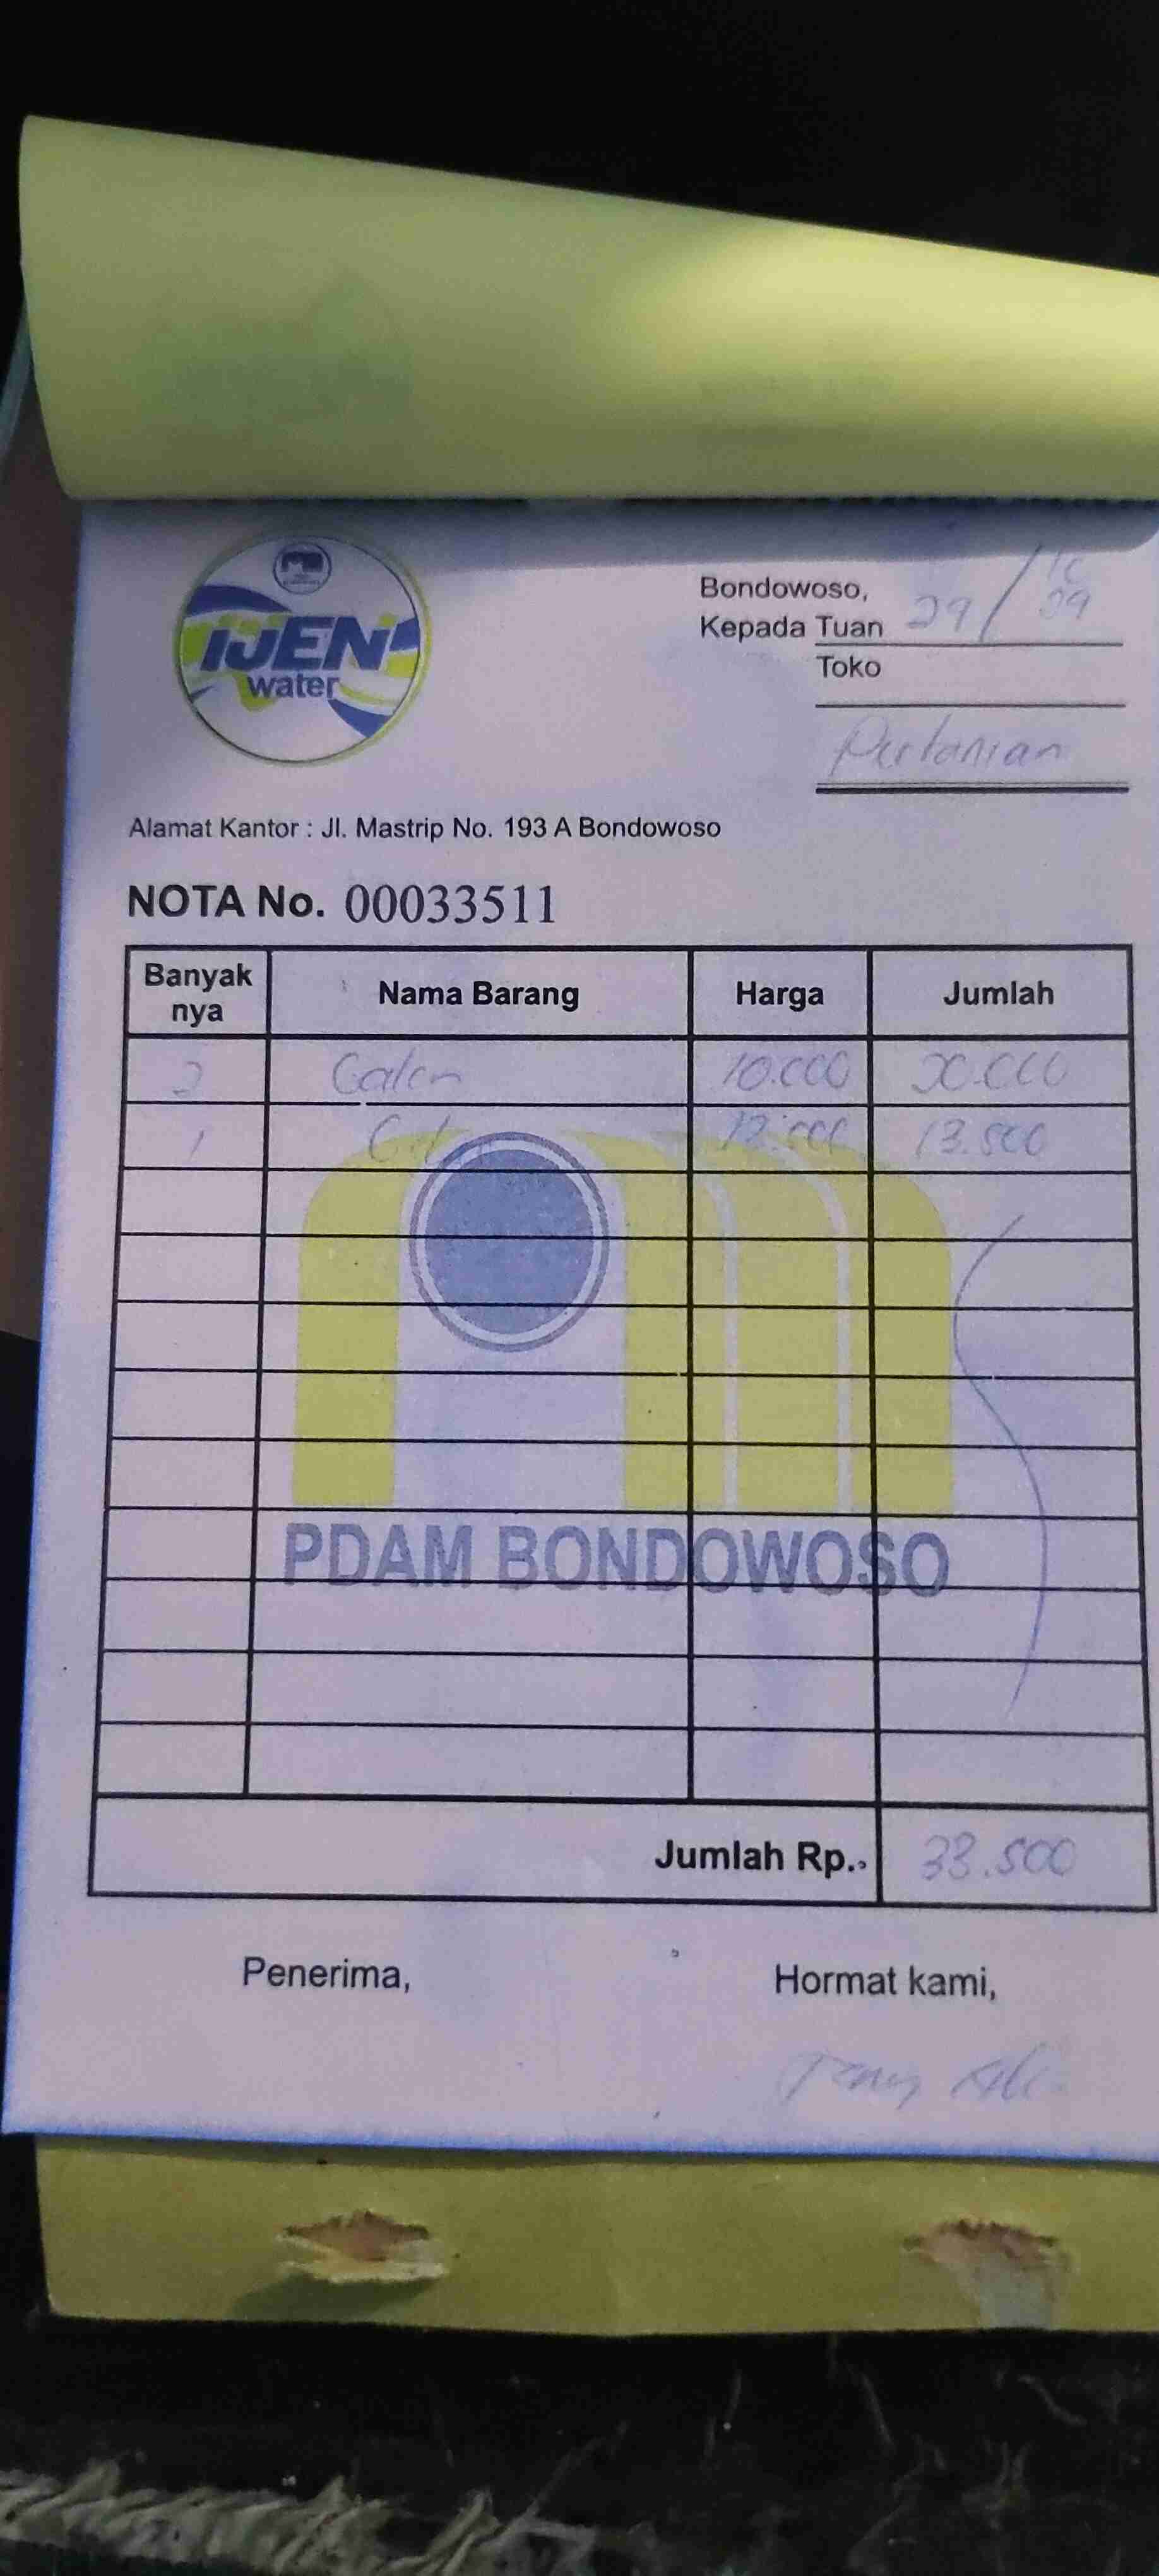 IJEN
water
Bondowoso,
Kepada Tuan 29/
Toko
Pertanian
Alamat Kantor : Jl. Mastrip No. 193 A Bondowoso
NOTA No. 00033511
Banyak nya Nama Barang Harga Jumlah
2 Galon 10.000 20.000
1 13.500
PDAM BONDOWOSO
Jumlah Rp. 33.500
Penerima, Hormat kami,